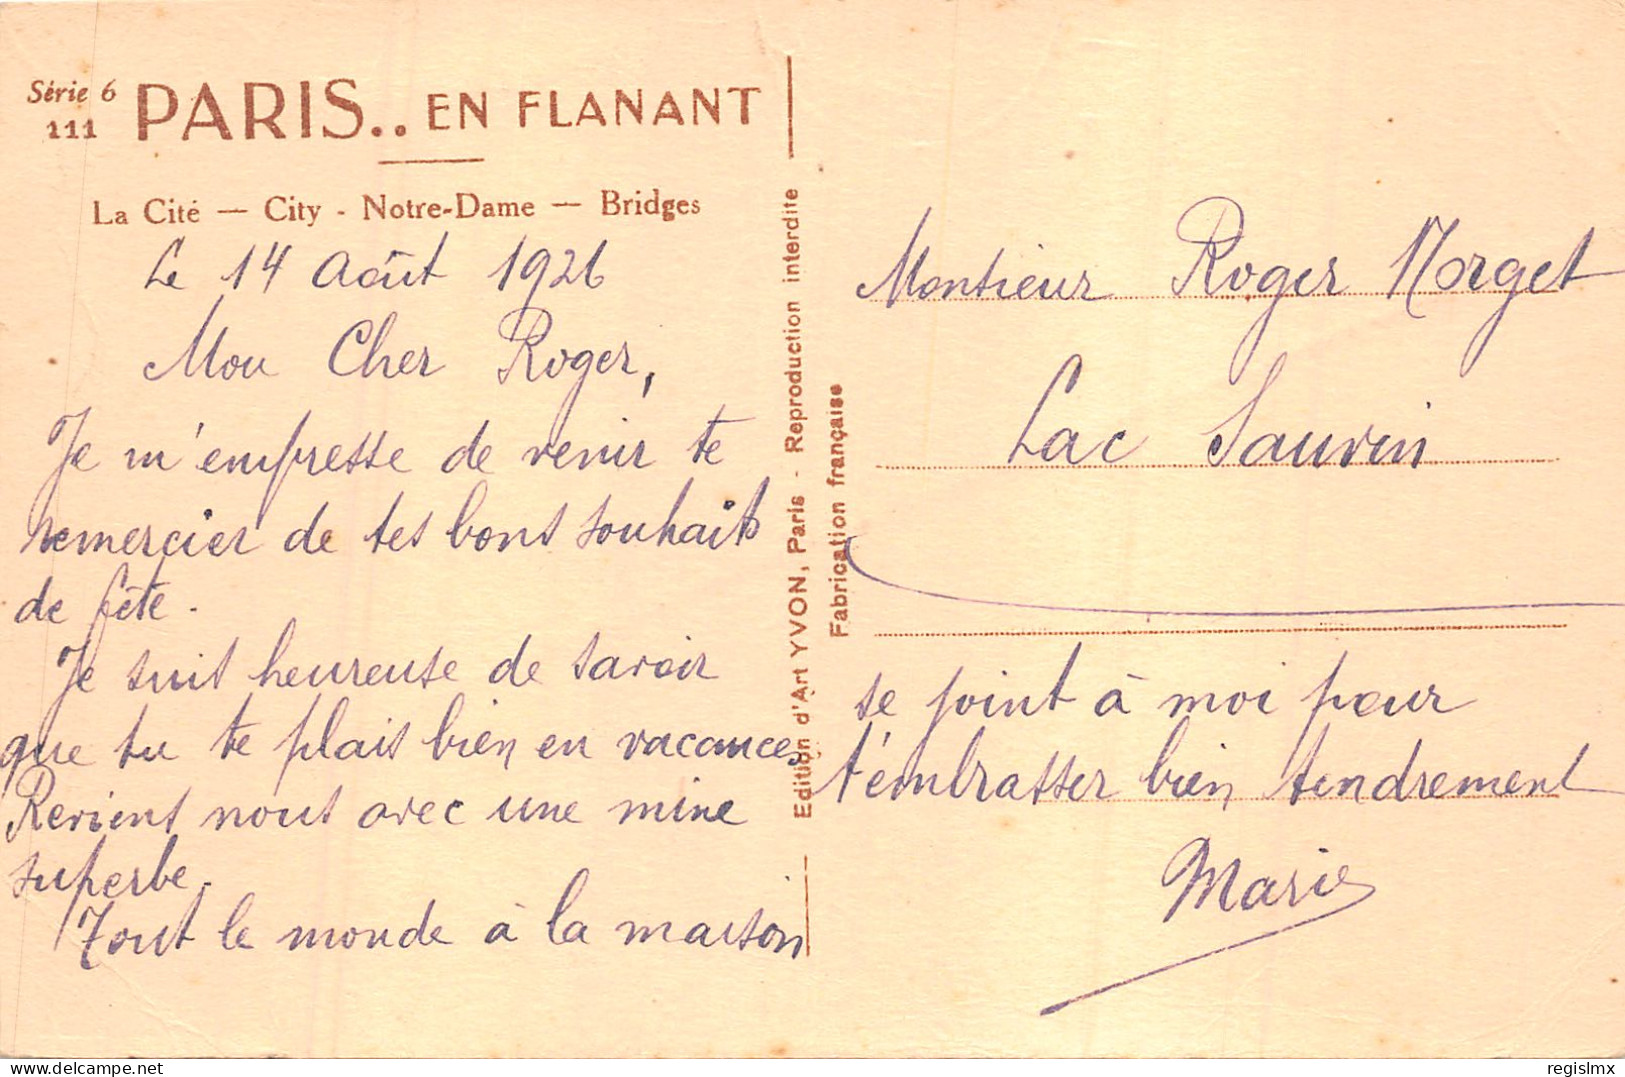 Série 6
111
PARIS.. EN FLANANT
La Cité — City - Notre-Dame — Bridges
Le 14 Août 1926
Mon Cher Roger,
Je m'empresse de venir te
remercier de tes bons souhaits
de fête.
Je suis heureuse de savoir
que tu te plais bien en vacances
Reviens nous avec une mine
superbe.
Tout le monde à la maison
Edition d'Art YVON, Paris - Reproduction interdite
Fabrication française
Monsieur Roger Morget
Lac Sauvin
se joint à moi pour
t'embrasser bien tendrement
Marie
regislmx